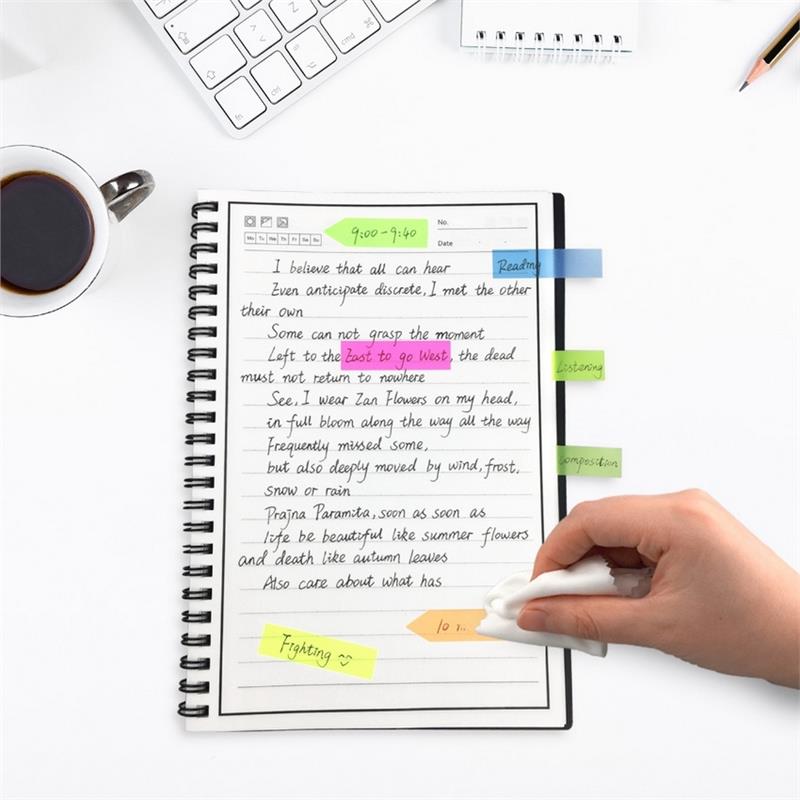 9:00-9:40
No.
Mo Tu We Th Fr Sa Su
Date
Reading
I believe that all can hear
Even anticipate discrete, I met the other
their own
Some can not grasp the moment
Left to the East to go West, the dead
must not return to nowhere
Listening
See, I wear Zan Flowers on my head,
in full bloom along the way all the way
Frequently missed some,
but also deeply moved by wind, frost,
Composition
snow or rain
Prajna Paramita, soon as soon as
life be beautiful like summer flowers
and death like autumn leaves
Also care about what has
10
Fighting
fn
cmd